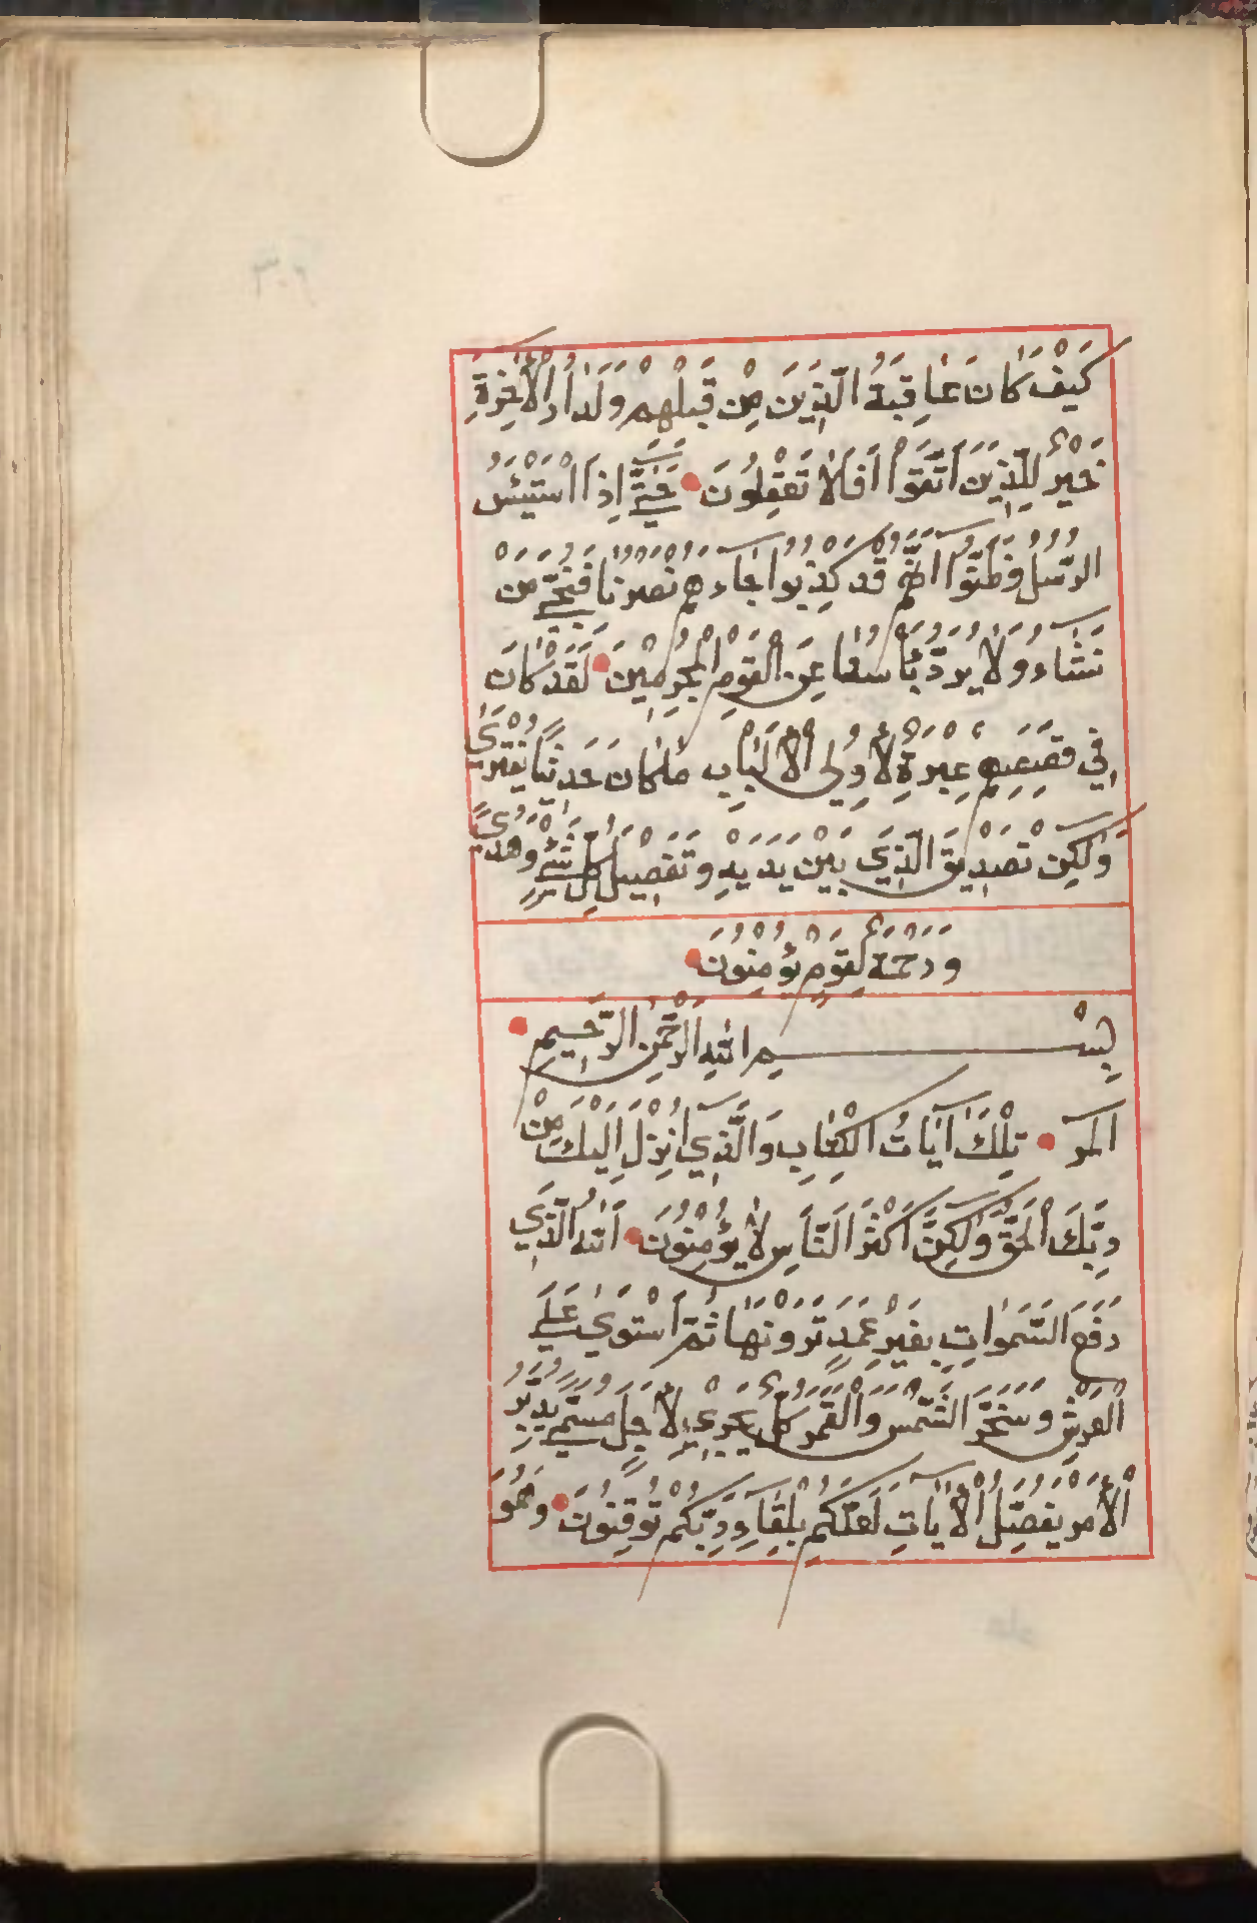 كَيْفَ كَانَ عَاقِبَةُ الَّذِينَ مِنْ قَبْلِهِمْ وَلَدَارُ الْاٰخِرَةِ
خَيْرٌ لِلَّذِينَ اتَّقَوْا اَفَلَا تَعْقِلُونَ حَتَّى اِذَا اسْتَيْئَسَ
الرُّسُلُ وَظَنُّوا اَنَّهُمْ قَدْ كُذِبُوا جَاءَهُمْ نَصْرُنَا فَنُجِّيَ مَنْ
نَشَاءُ وَلَا يُرَدُّ بَأْسُنَا عَنِ الْقَوْمِ الْمُجْرِمِينَ لَقَدْ كَانَ
فِي قَصَصِهِمْ عِبْرَةٌ لِاُولِي الْاَلْبَابِ مَا كَانَ حَدِيثًا يُفْتَرٰى
وَلٰكِنْ تَصْدِيقَ الَّذِي بَيْنَ يَدَيْهِ وَتَفْصِيلَ كُلِّ شَيْءٍ وَهُدًى
وَرَحْمَةً لِقَوْمٍ يُؤْمِنُونَ
بِسْمِ اللهِ الرَّحْمٰنِ الرَّحِيمِ
الٓمٓرٰ تِلْكَ اٰيَاتُ الْكِتَابِ وَالَّذِي اُنْزِلَ اِلَيْكَ مِنْ
رَبِّكَ الْحَقُّ وَلٰكِنَّ اَكْثَرَ النَّاسِ لَا يُؤْمِنُونَ اَللهُ الَّذِي
رَفَعَ السَّمٰوَاتِ بِغَيْرِ عَمَدٍ تَرَوْنَهَا ثُمَّ اسْتَوٰى عَلَى
الْعَرْشِ وَسَخَّرَ الشَّمْسَ وَالْقَمَرَ كُلٌّ يَجْرِي لِاَجَلٍ مُسَمًّى يُدَبِّرُ
الْاَمْرَ يُفَصِّلُ الْاٰيَاتِ لَعَلَّكُمْ بِلِقَاءِ رَبِّكُمْ تُوقِنُونَ وَهُوَ